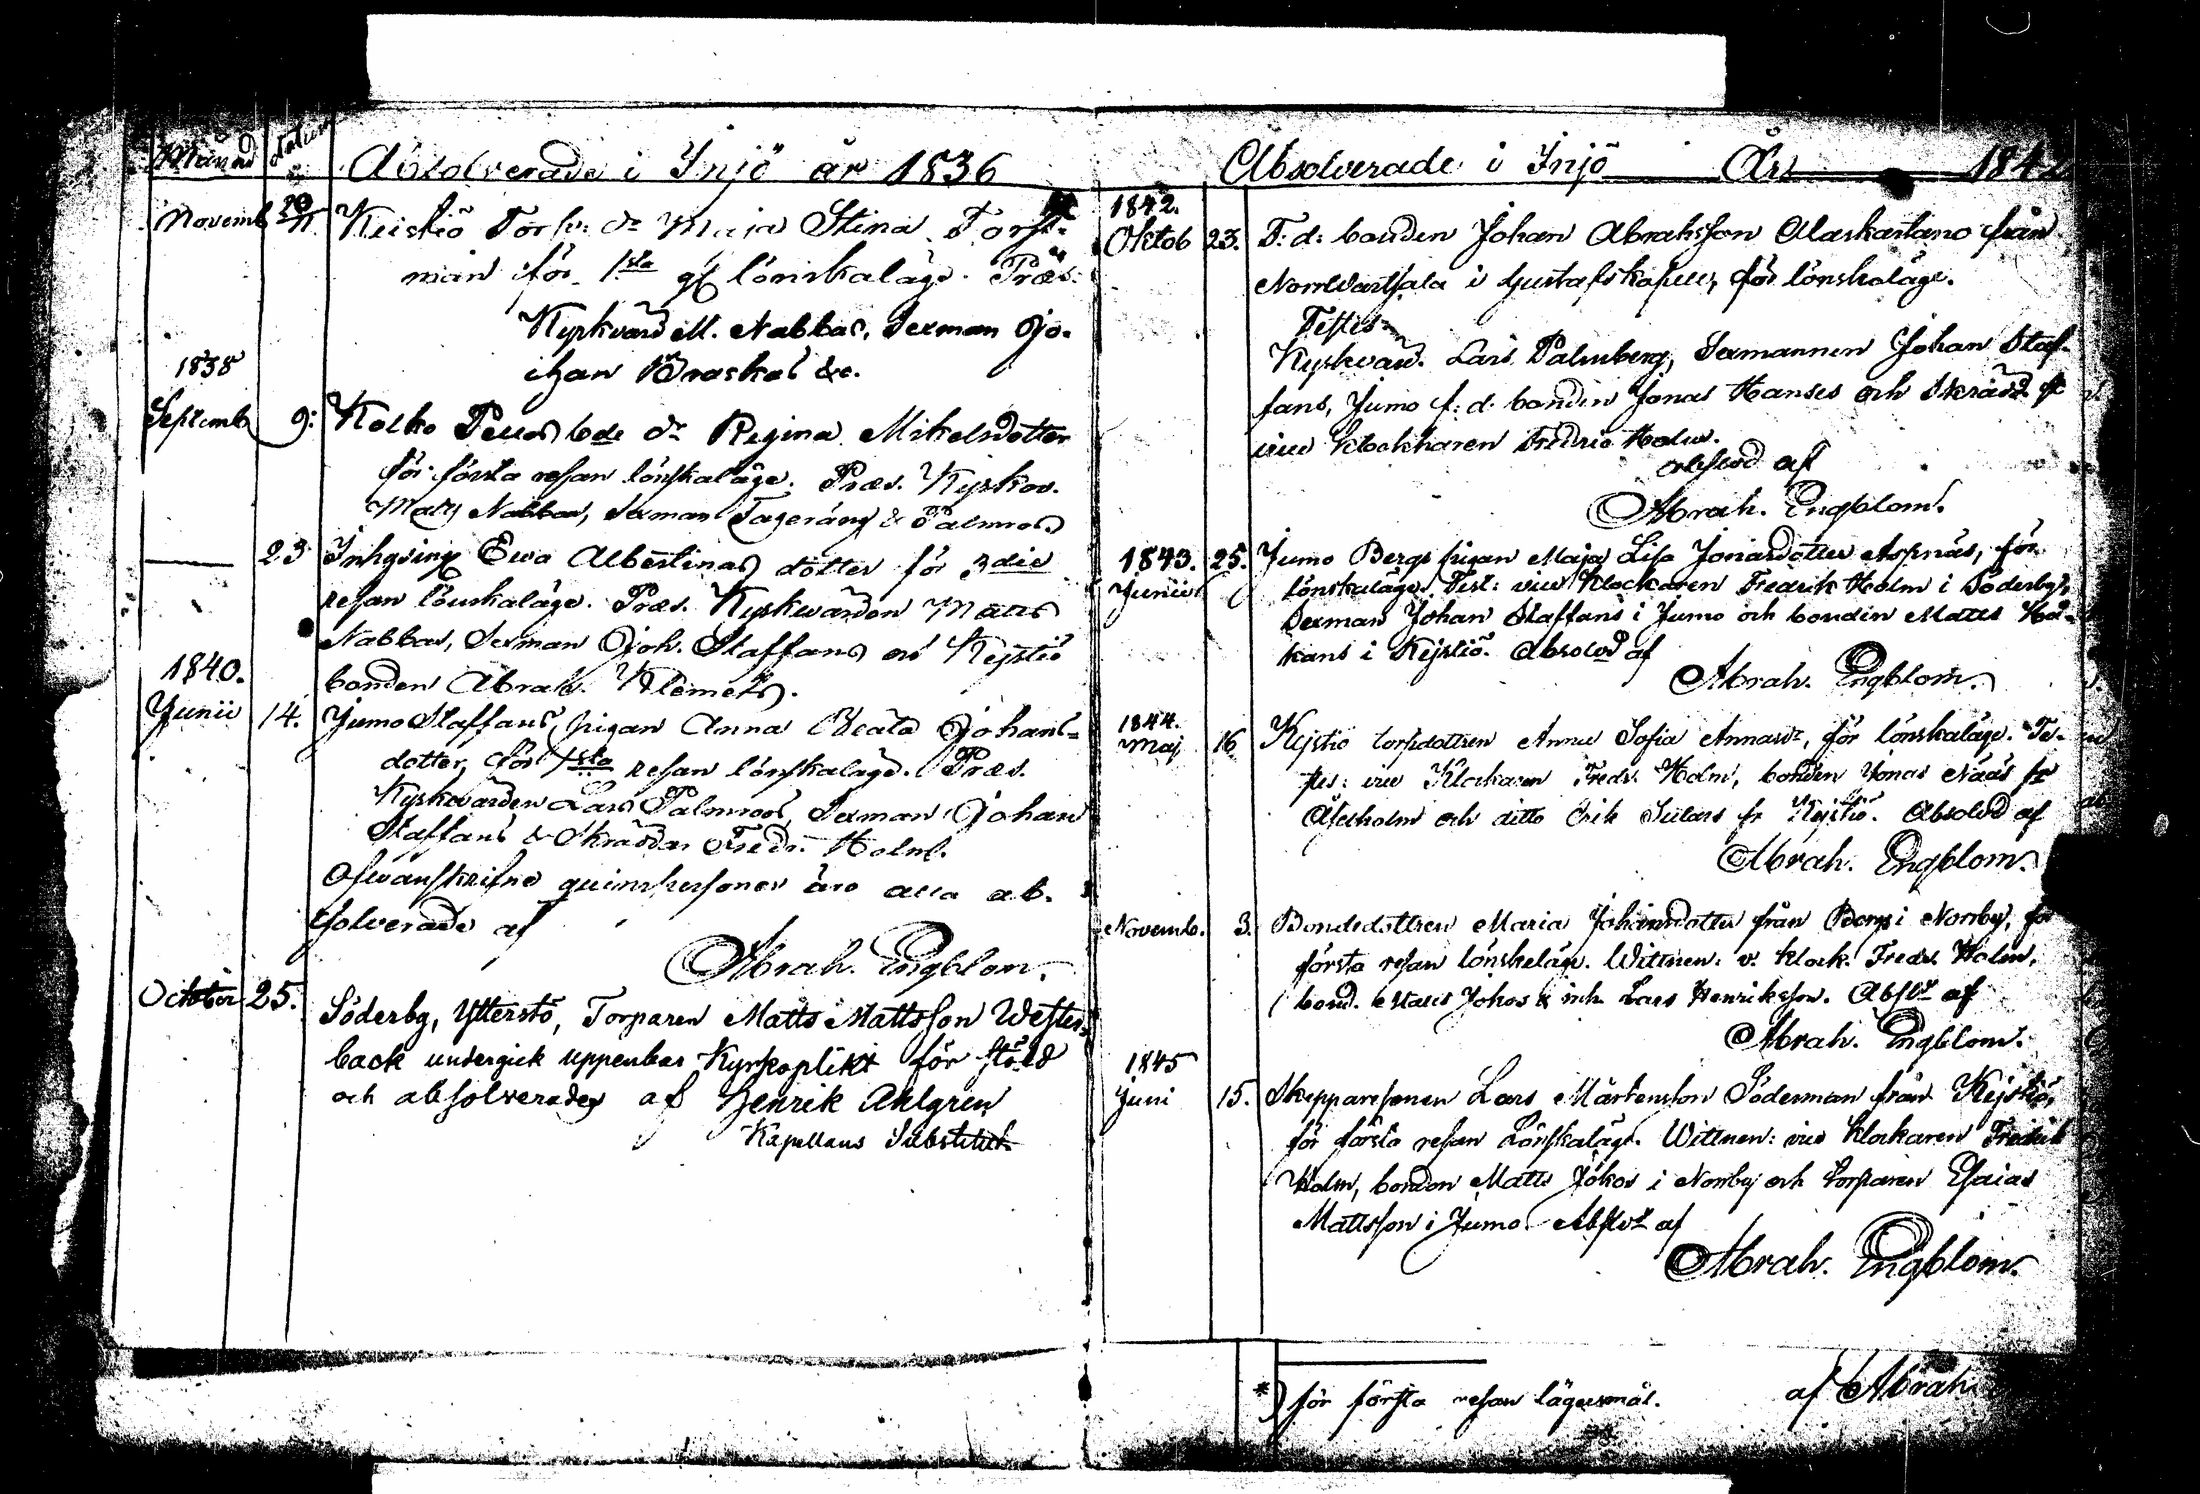 Månad Datum Absolverade i Iniö år 1836
Novemb 20 Keistiö Torp: dr Maja Stina Torst-
man för 1sta gg lönskaläge. Præs:
Kyrkvärd M. Nabbas, Sexman Jo-
han Braskas &c.
1838
Septemb 9: Kolko Pellas bde dr Regina Mikelsdotter
för första resan lönskaläge. Præs. Kyrkov.
Matts Nabbas, Sexman & Palmros
23 Inhysing Ewa Albertinas dotter för 3die
resan lönskaläge. Præs. Kyrkwärden Matts
Nabbas, Sexman Joh. Staffans och Kejstiö
bonden Abrah. Klemets.
1840.
Junii 14. Jumo Staffans pigan Anna Beata Johans-
dotter, för 1sta resan lönskaläge. Præs.
Kyrkwärden Lars Palmroos, Sexman Johan
Staffans & Skräddar Fredr. Holm.
Ofwanskrifne quinspersoner äro alla ab-
solverade af
Abrah. Engblom.
October 25. Söderby, Ytterstö, Torparen Matts Mattsson Wester-
back undergick uppenbar Kyrkoplikt för stöld
och absolverades af Henrik Ahlgren
Kapellans Substitut
Absolverade i Iniö År 1842
1842.
Oktob 23. F: d: bonden Johan Abrahsson Alaskartano från
Norrwartsala i Gustafs kapell, för lönskaläge.
Testes:
Kyrkvärd. Lars Palmberg, Sexmannen Johan Staf-
fans, Jumo f: d: bonden Jonas Hanses och Skrädd.
vice Klockharen Fredric Holm.
absolvd af
Abrah. Engblom.
1843. 25. Jumo Bergs pigan Maja Lisa Jonasdotter Aspnäs, för
Junii lönskaläge. Test: vice Klockaren Fredrik Holm i Söderby,
Sexman Johan Staffans i Jumo och bonden Matts
kans i Kejstiö. Absolvd af
Abrah. Engblom.
1844.
Maj 16 Kejstiö torpdottren Anna Sofia Annasdr, för lönskaläge. Te-
stes: vice Klockaren Fredr. Holm, bonden Jonas Nääs fr
Åselholm och ditto Erik fr Kejstiö. Absolvd af
Abrah. Engblom.
Novemb. 3. Bondedottren Maria Johansdotter från Bergs i Norrby, för
första resan lönskeläge. Wittnen: v. Klock. Fredr. Holm,
bond. Matts Jokos & inh. Lars Henriksson. Abslvd af
Abrah. Engblom.
1845
Juni 15. Skepparesonen Lars Mårtensson Söderman från Kejstiö,
för första resan Lönskaläge. Wittnen: vice klockaren Fredrik
Holm, bonden Matts Jokos i Norrby och torparen Esaias
Mattsson i Jumo. Abslvd af
Abrah. Engblom.
*) för första resan lägersmål. af Abrah.